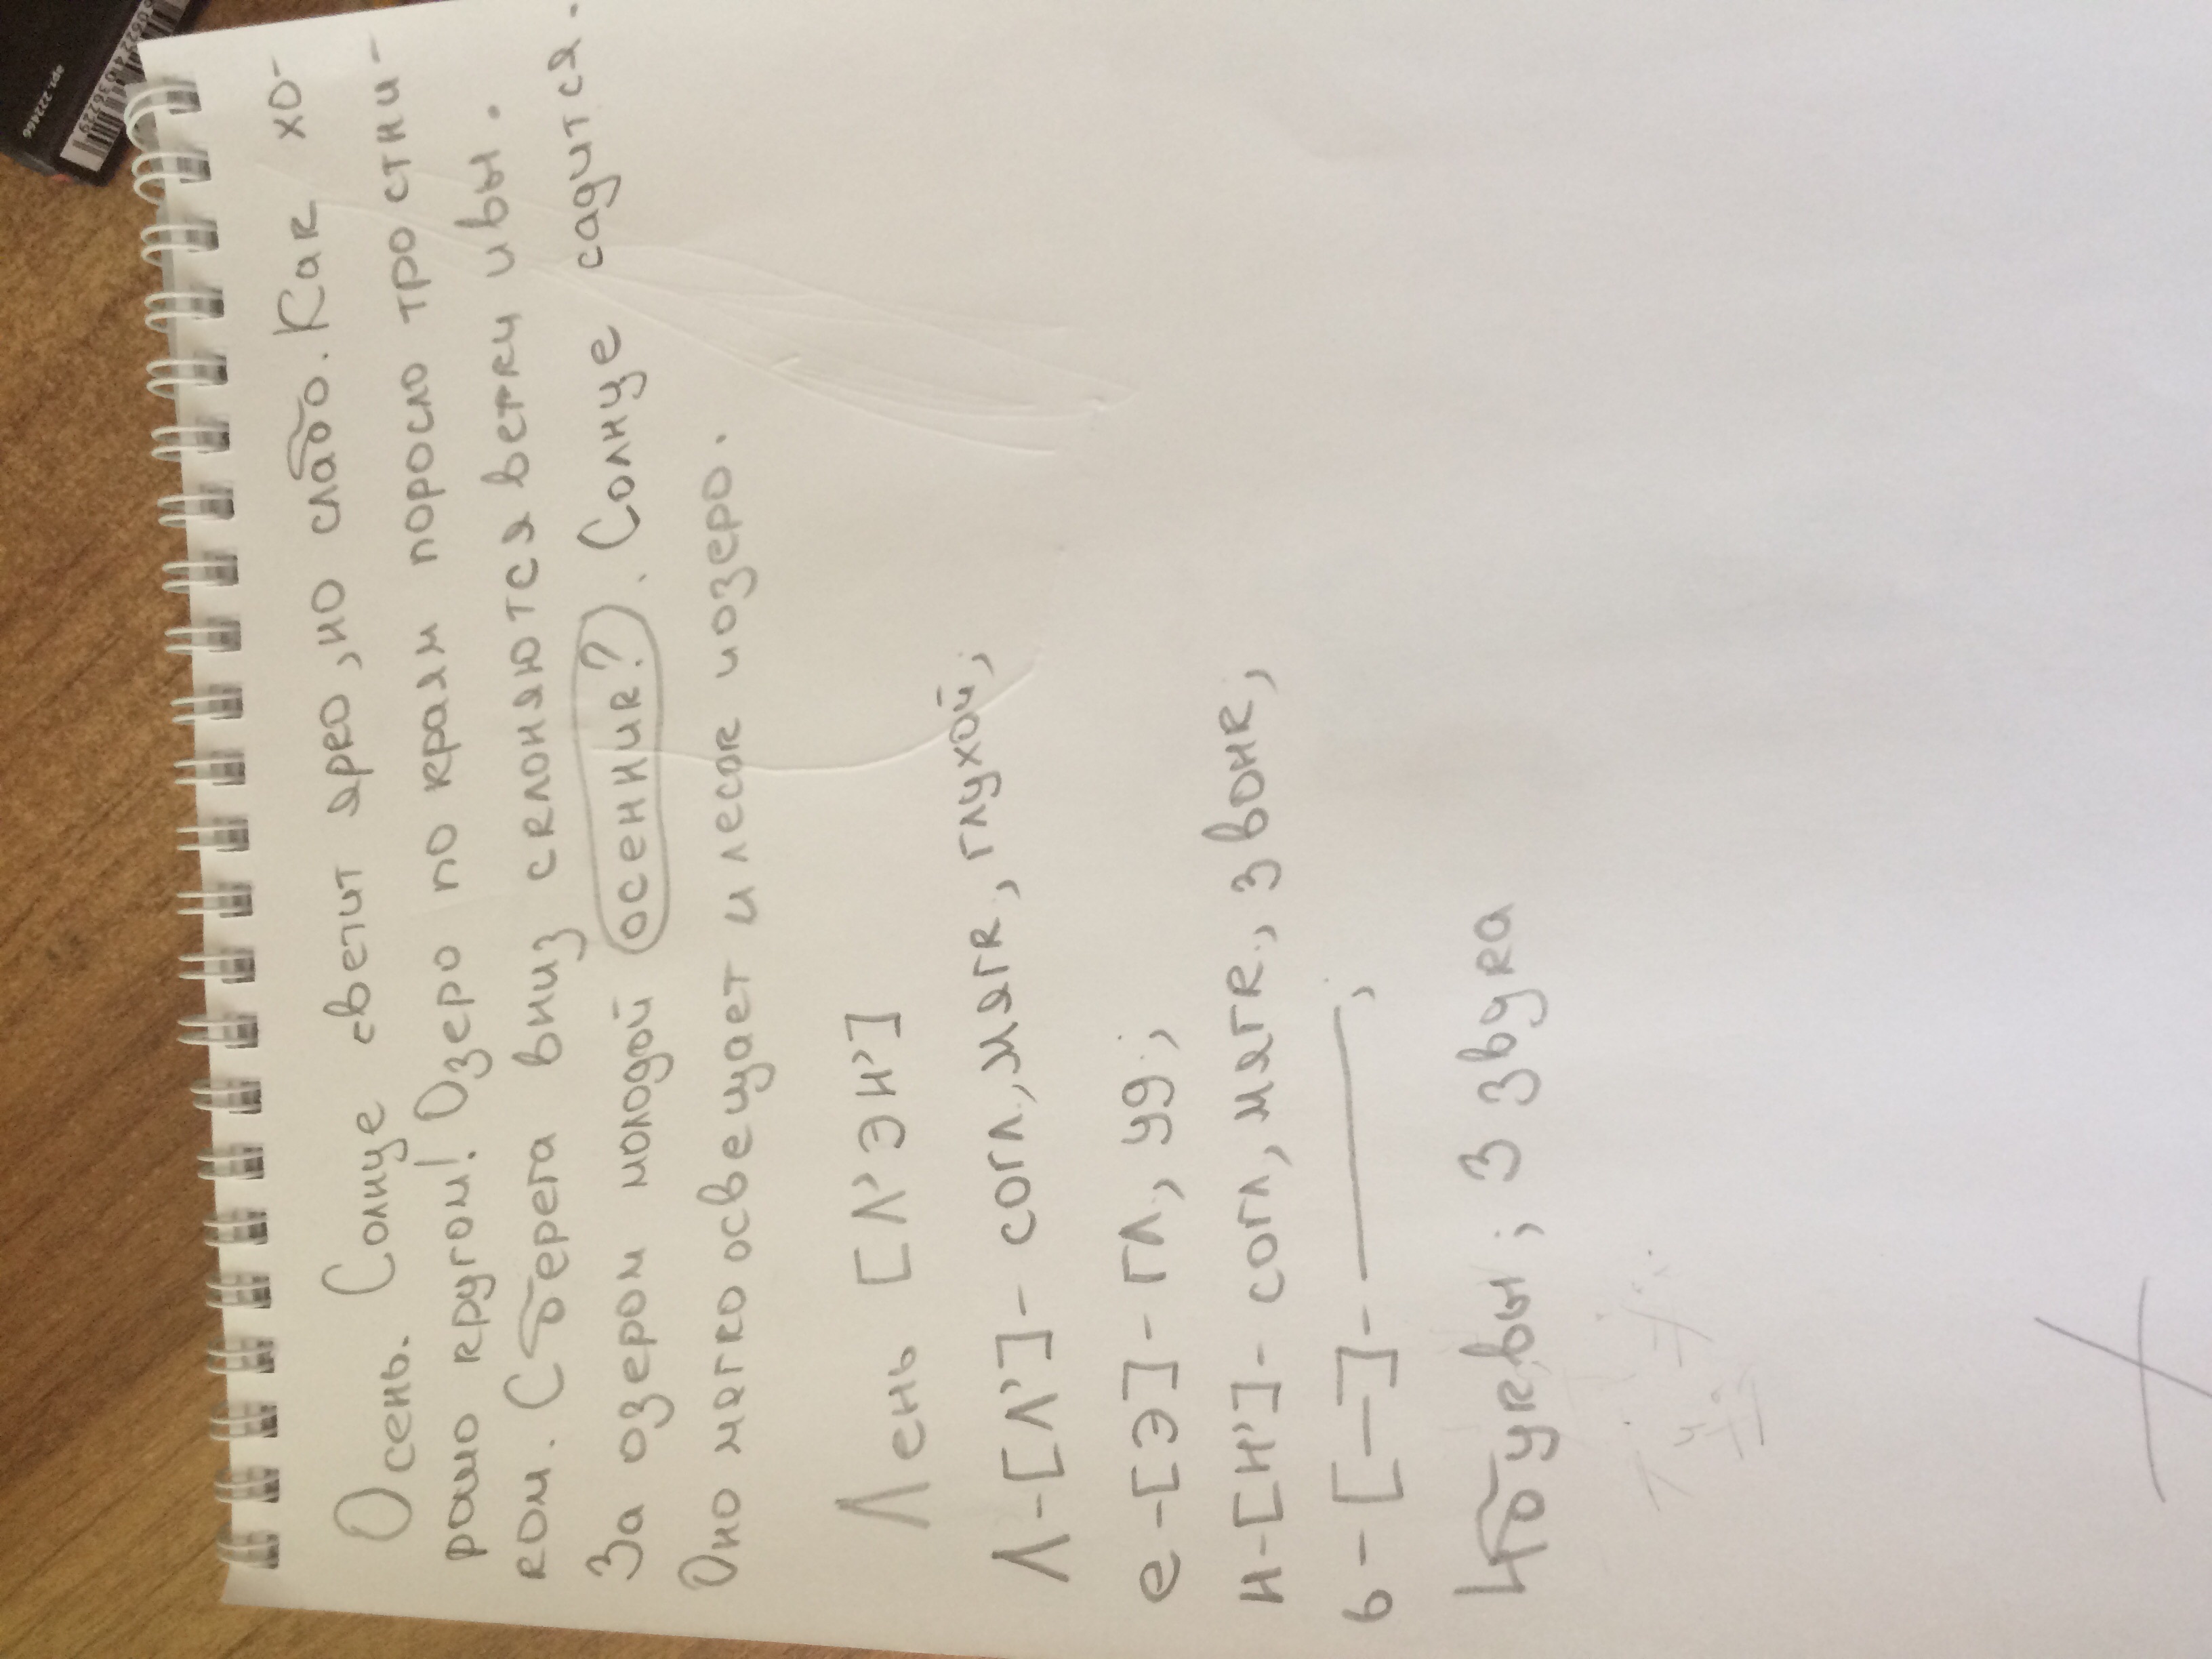 Осень. Солнце светит ярко, но слабо. Как хо-
рошо кругом! Озеро по краям поросло тростни-
ком. С берега вниз склоняются ветки ивы.
За озером молодой осенник?. Солнце садится.
Оно мягко освещает и лесок и озеро.
Лень [л'эн']
Л-[л']- согл., мягк., глухой,
е-[э]-гл., уд.,
н-[н']- согл., мягк., звонк.,
ь-[—]-———,
4 буквы; 3 звука
арт. 222466